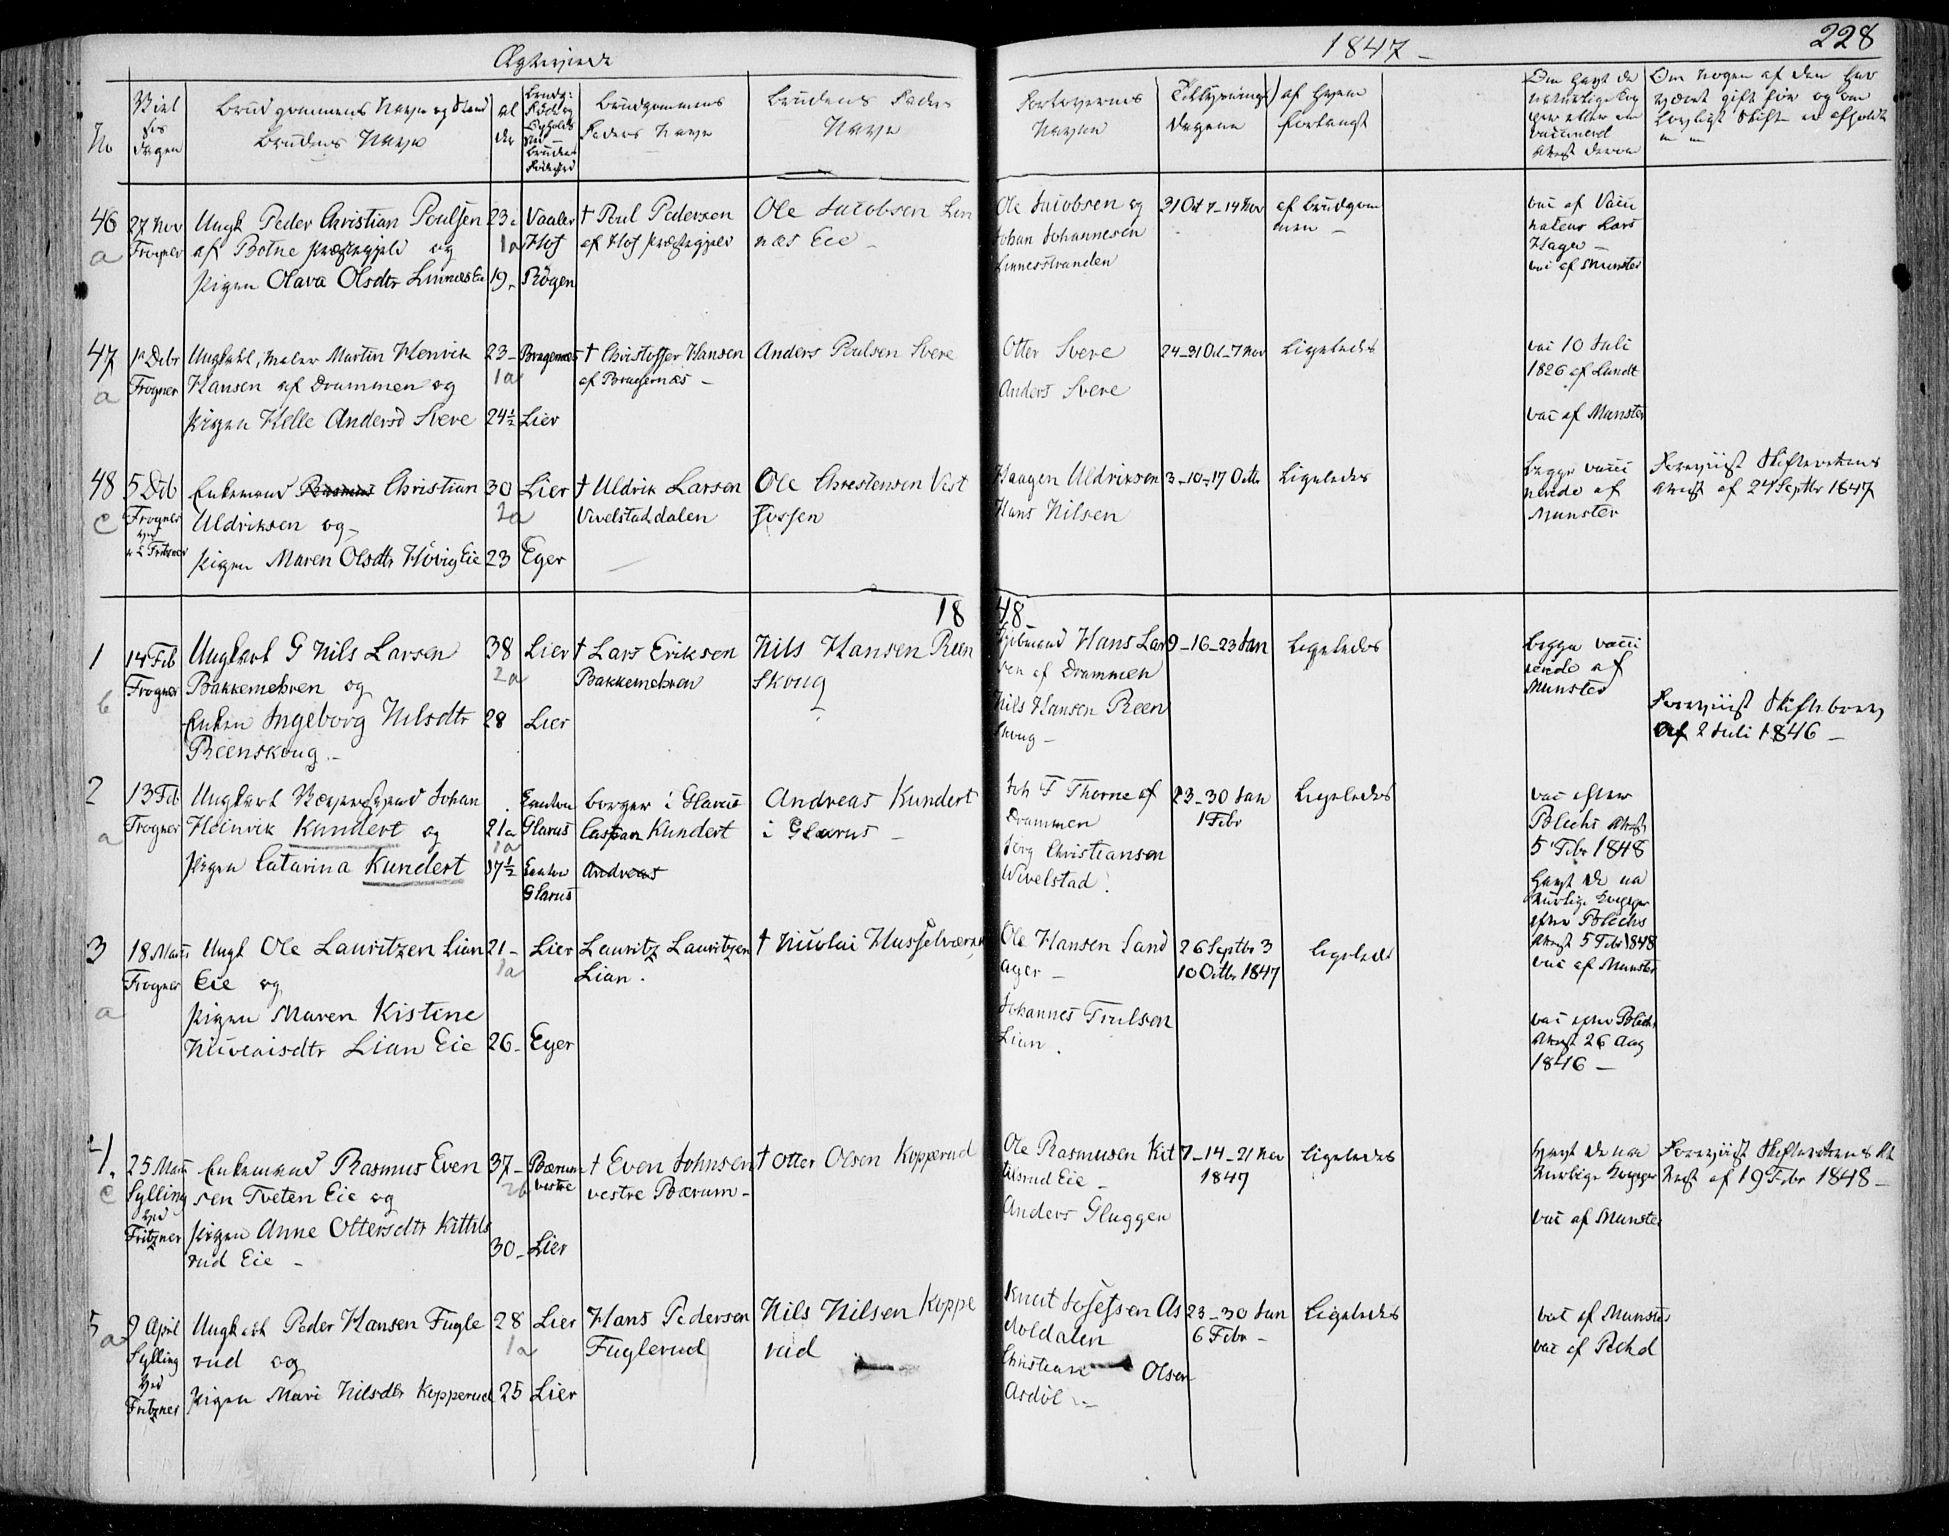 Ægteviede
1847 -
228
No
Viel
ses
dagen
Brudgommens Navn og Stand
Brudens Navn
al
der
Brudg:
Føde og
Opholds
Sted
Brudens
Fødested
Brudgommens
Faders Navn
Brudens Faders
Navn
Forlovernes
Navne
Tillysnings
dagene
af hvem
forlangt
Om havt de
naturlige Kop
per eller ere
vaccinered
Attest derom
Om nogen af dem har
været gift før og om
lovligt Skifte er afholdt
46
a
27 Nov
Frogner
Ungk Peder Christian Poulsen
af Botne Præstegjeld og
Pigen Olava Olsdtr Linnæs Eie
23
1a
19
Vaaler
Hof
Rögen
† Poul Pedersen
af Hof Præstegjeld
Ole Jacobsen Lin
næs Eie -
Ole Jacobsen og
Johan Johannesen
Linnesstranden
31 Oct 7-14 Nov
af Brudgom
men -
vac af Vacci
nateur Lars
Hager -
vac af Munster
47
a
1 Decbr
Frogner
Ungkarl, Maler Martin Henrik
Hansen af Drammen og
Pigen Helle Andersd Svere
23 -
1a
24½
Bragernæs
Lier
† Christoffer Hansen
af Bragernæs -
Anders Paulsen Svere
Otter Svere
Anders Svere
24-31 Oct-7 Nov
Ligeledes
vac 10 Juli
1826 af Lundt
vac af Munster
48
c
5 Deb
Frogner
ved
Fritzner
Enkemand Christian
Uldriksen og
Pigen Maren Olsdtr Hövig Eie
30
2a
23
Lier
Eger
† Uldrik Larsen
Vivelstaddalen
Ole Christensen Vest
fossen
Haagen Uldriksen
Hans Nilsen
3-10-17 Octbr
Ligeledes
Begge vacci
nerede af
Munster
Foreviist Skifterettens
Attest af 24 Septbr 1847
1848
1
b
14 Feb
Frogner
Ungkarl G Nils Larsen
Bakkemehren og
Enken Ingeborg Nilsdtr
Reenskoug -
38
2a
28
Lier
Lier
† Lars Eriksen
Bakkemehren
Nils Hansen Reen
skoug
Hans Lar
sen af Drammen
Nils Hansen Reen
skoug -
9-16-23 Jan
Ligeledes
Begge vacci
nerede af
Munster
Foreviist Skiftebrev
af 2 Juli 1846 -
2
a
13 Feb
Frogner
Ungkarl Johan
Heinrik Kundert og
Pigen Catarina Kundert
21
1a
17½
Canton
Glarus
Canton
Glarus
borger i Glarus
Caspar Kundert
Andreas
Andreas Kundert
i Glarus -
Joh F Thorne af
Drammen
Jörg Christiansen
Wivelstad
23-30 Jan
1 Febr
Ligeledes
vac efter
Blichs Attest
5 Febr 1848
havt de na
turlige Kopper
efter Blichs
Attest 5 Febr 1848
3
a
18 Marts
Frogner
Ungk Ole Lauritzen Lian
Eie og
Pigen Maren Kistine
Nicolaisdtr Lian Eie
21 -
1a
26 -
Lier
Eger
Lauritz Lauritzen
Lian .
† Nicolai Hasselværket
Ole Hansen Sand
ager -
Johannes Trulsen
Lian .
26 Septbr 3
10 Octbr 1847
Ligeledes
vac af Munster
vac efter Blichs
Attest 26 Aug
1846 -
4.
c
25 Marts
Sylling
ved
Fritzner
Enkemand Rasmus Even
sen Tveten Eie og
Pigen Anne Ottersdtr Kittils
rud Eie -
37 -
2b
30 -
Bærum
vestre
Lier
† Even Johnsen
vestre Bærum -
† Otter Olsen Kopperud
Ole Rasmusen Kit
tilsrud Eie -
Anders Gluggen
7-14-21 Nov
1847
Ligeledes
havt de na
turlige Kopper
vac af Munster
Foreviist Skifterettens At
test af 19 Febr 1848 -
5
a
9 April
Sylling
ved
Fritzner
Ungkarl Peder Hansen Fugle
rud og
Pigen Mari Nilsdtr Kopperud
28
1a
25
Lier
Lier
Hans Pedersen
Fuglerud
Nils Nilsen Koppe
rud
Knut Josefsen As
doldalen
Christian Olsen
Asdöl -
23-30 Jan
6 Febr -
Ligeledes
vac af Munster
vac af